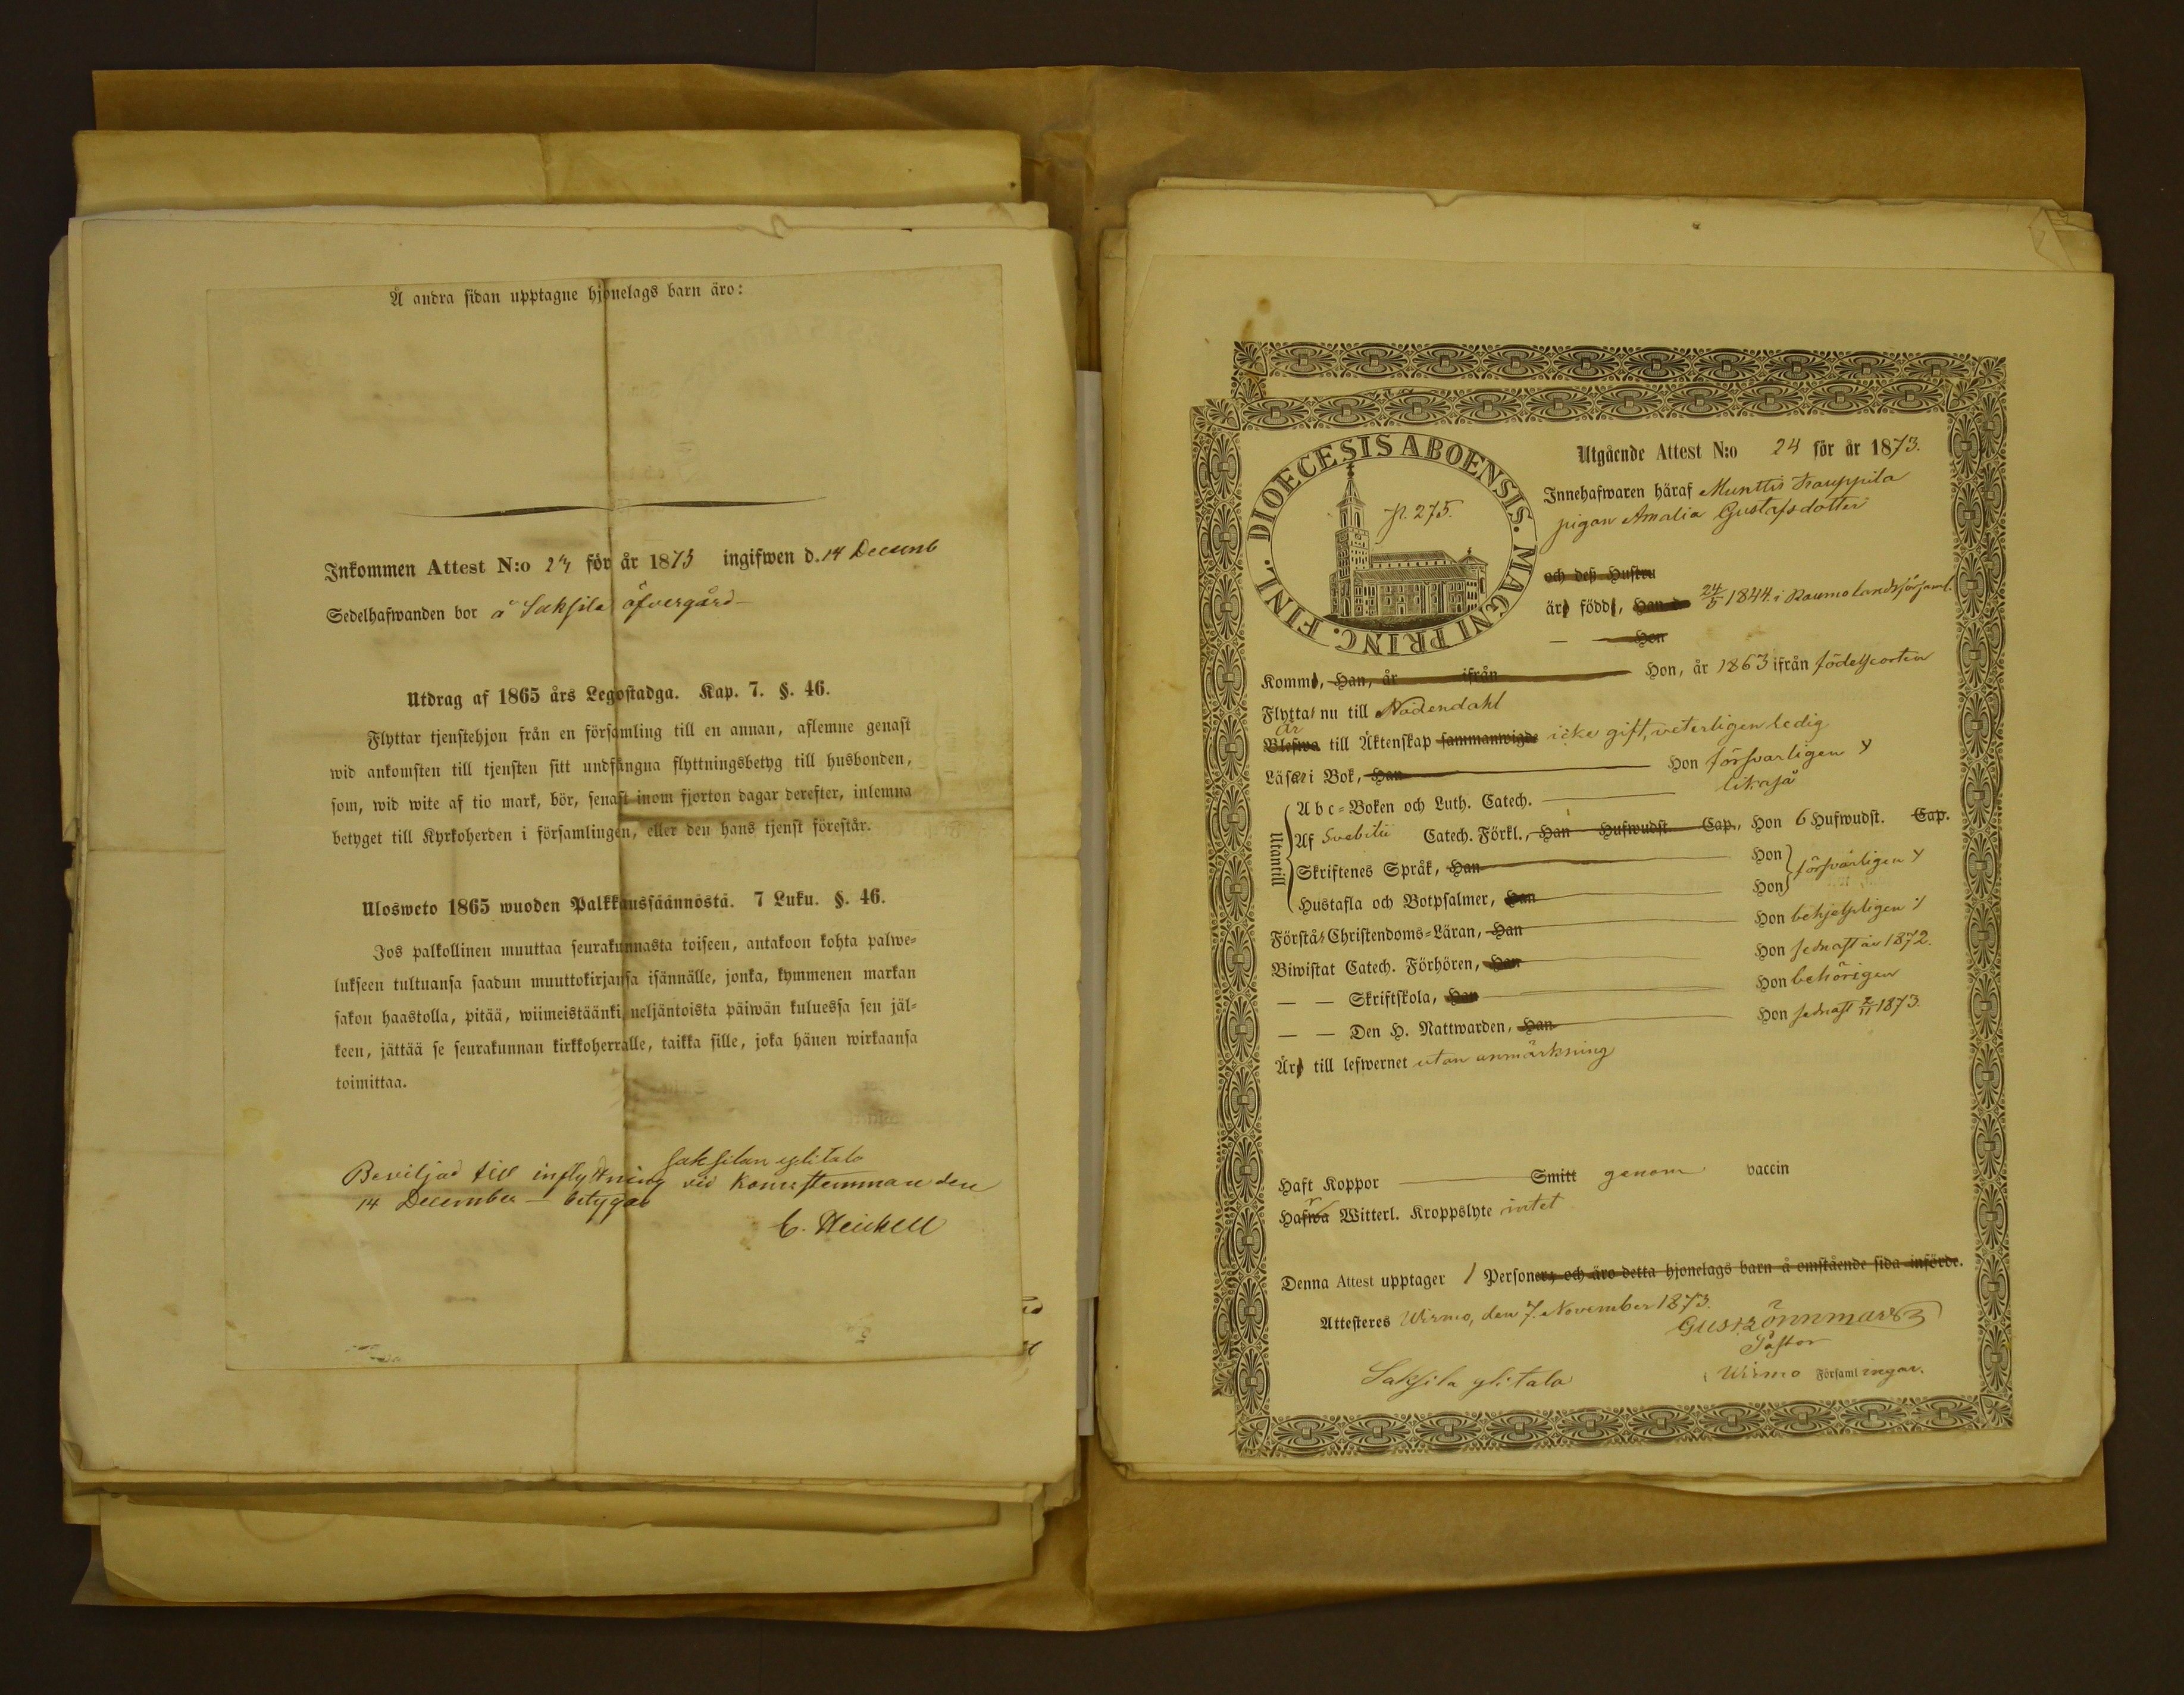 Å andra sidan upptagne hjonelags barn äro:
Inkommen Attest N:o 24 för år 1873 ingifwen d. 14 Decemb
Sedelhafwanden bor å Saksila öfvergård
Utdrag af 1865 års Legostadga. Kap. 7. §. 46.
Flyttar tjenstehjon från en församling till en annan, aflemne genast
wid ankomsten till tjensten sitt undfångna flyttningsbetyg till husbonden,
som, wid wite af tio mark, bör, senast inom fjorton dagar derefter, inlemna
betyget till Kyrkoherden i församlingen, eller den hans tjenst förestår.
Ulosweto 1865 wuoden Palkkaussäännöstä. 7 Luku. §. 46.
Jos palkollinen muuttaa seurakunnasta toiseen, antakoon kohta palwe-
lukseen tultuansa saadun muuttokirjansa isännälle, jonka, kymmenen markan
sakon haastolla, pitää, wiimeistäänki neljäntoista päiwän kuluessa sen jäl-
keen, jättää se seurakunnan kirkkoherralle, taikka sille, joka hänen wirkaansa
toimittaa.
Saksilan ylitalo
Beviljad till inflyttning vid komstemman den
14 December – betygar
C. Heickell
DIOECESIS ABOENSIS. MAGNI PRINC. FINL.
p. 275.
Utgående Attest N:o 24 för år 1873.
Innehafwaren häraf Munttis Krauppila
pigan Amalia Gustafsdotter
och deß Hustru
äro född, Han d. 24/5 1844 i Raumo landsförsaml.
— Hon
Komm, Han, år ifrån Hon, år 1863 ifrån födelseorten
Flytta nu till Nådendahl
Är
Blefwa till Äktenskap sammanwigde icke gift, veterligen ledig
Läser i Bok, Han Hon försvarligen
Utantill
Abc-Boken och Luth. Catech. likaså
Af Svebilii Catech. Förkl., Han Hufwudst. Cap., Hon 6 Hufwudst. Cap.
Skriftenes Språk, Han Hon försvarligen
Hustafla och Botpsalmer, Han Hon
Förstå Christendoms-Läran, Han Hon behjelpligen
Biwistat Catech. Förhören, Han Hon sednast år 1872.
— — Skriftskola, Han Hon behörigen
— — Den H. Nattwarden, Han Hon sednast 2/11 1873.
Är till lefwernet utan anmärkning
Haft Koppor Smitt genom vaccin
Hafwa Witterl. Kroppslyte intet
Denna Attest upptager 1 Personer, och äro detta hjonelags barn å omstående sida införde.
Attesteres Wirmo, den 7. November 1873.
Gust. Rönnmark
Pastor
Saksila ylitalo
i Wirmo Församlingar.